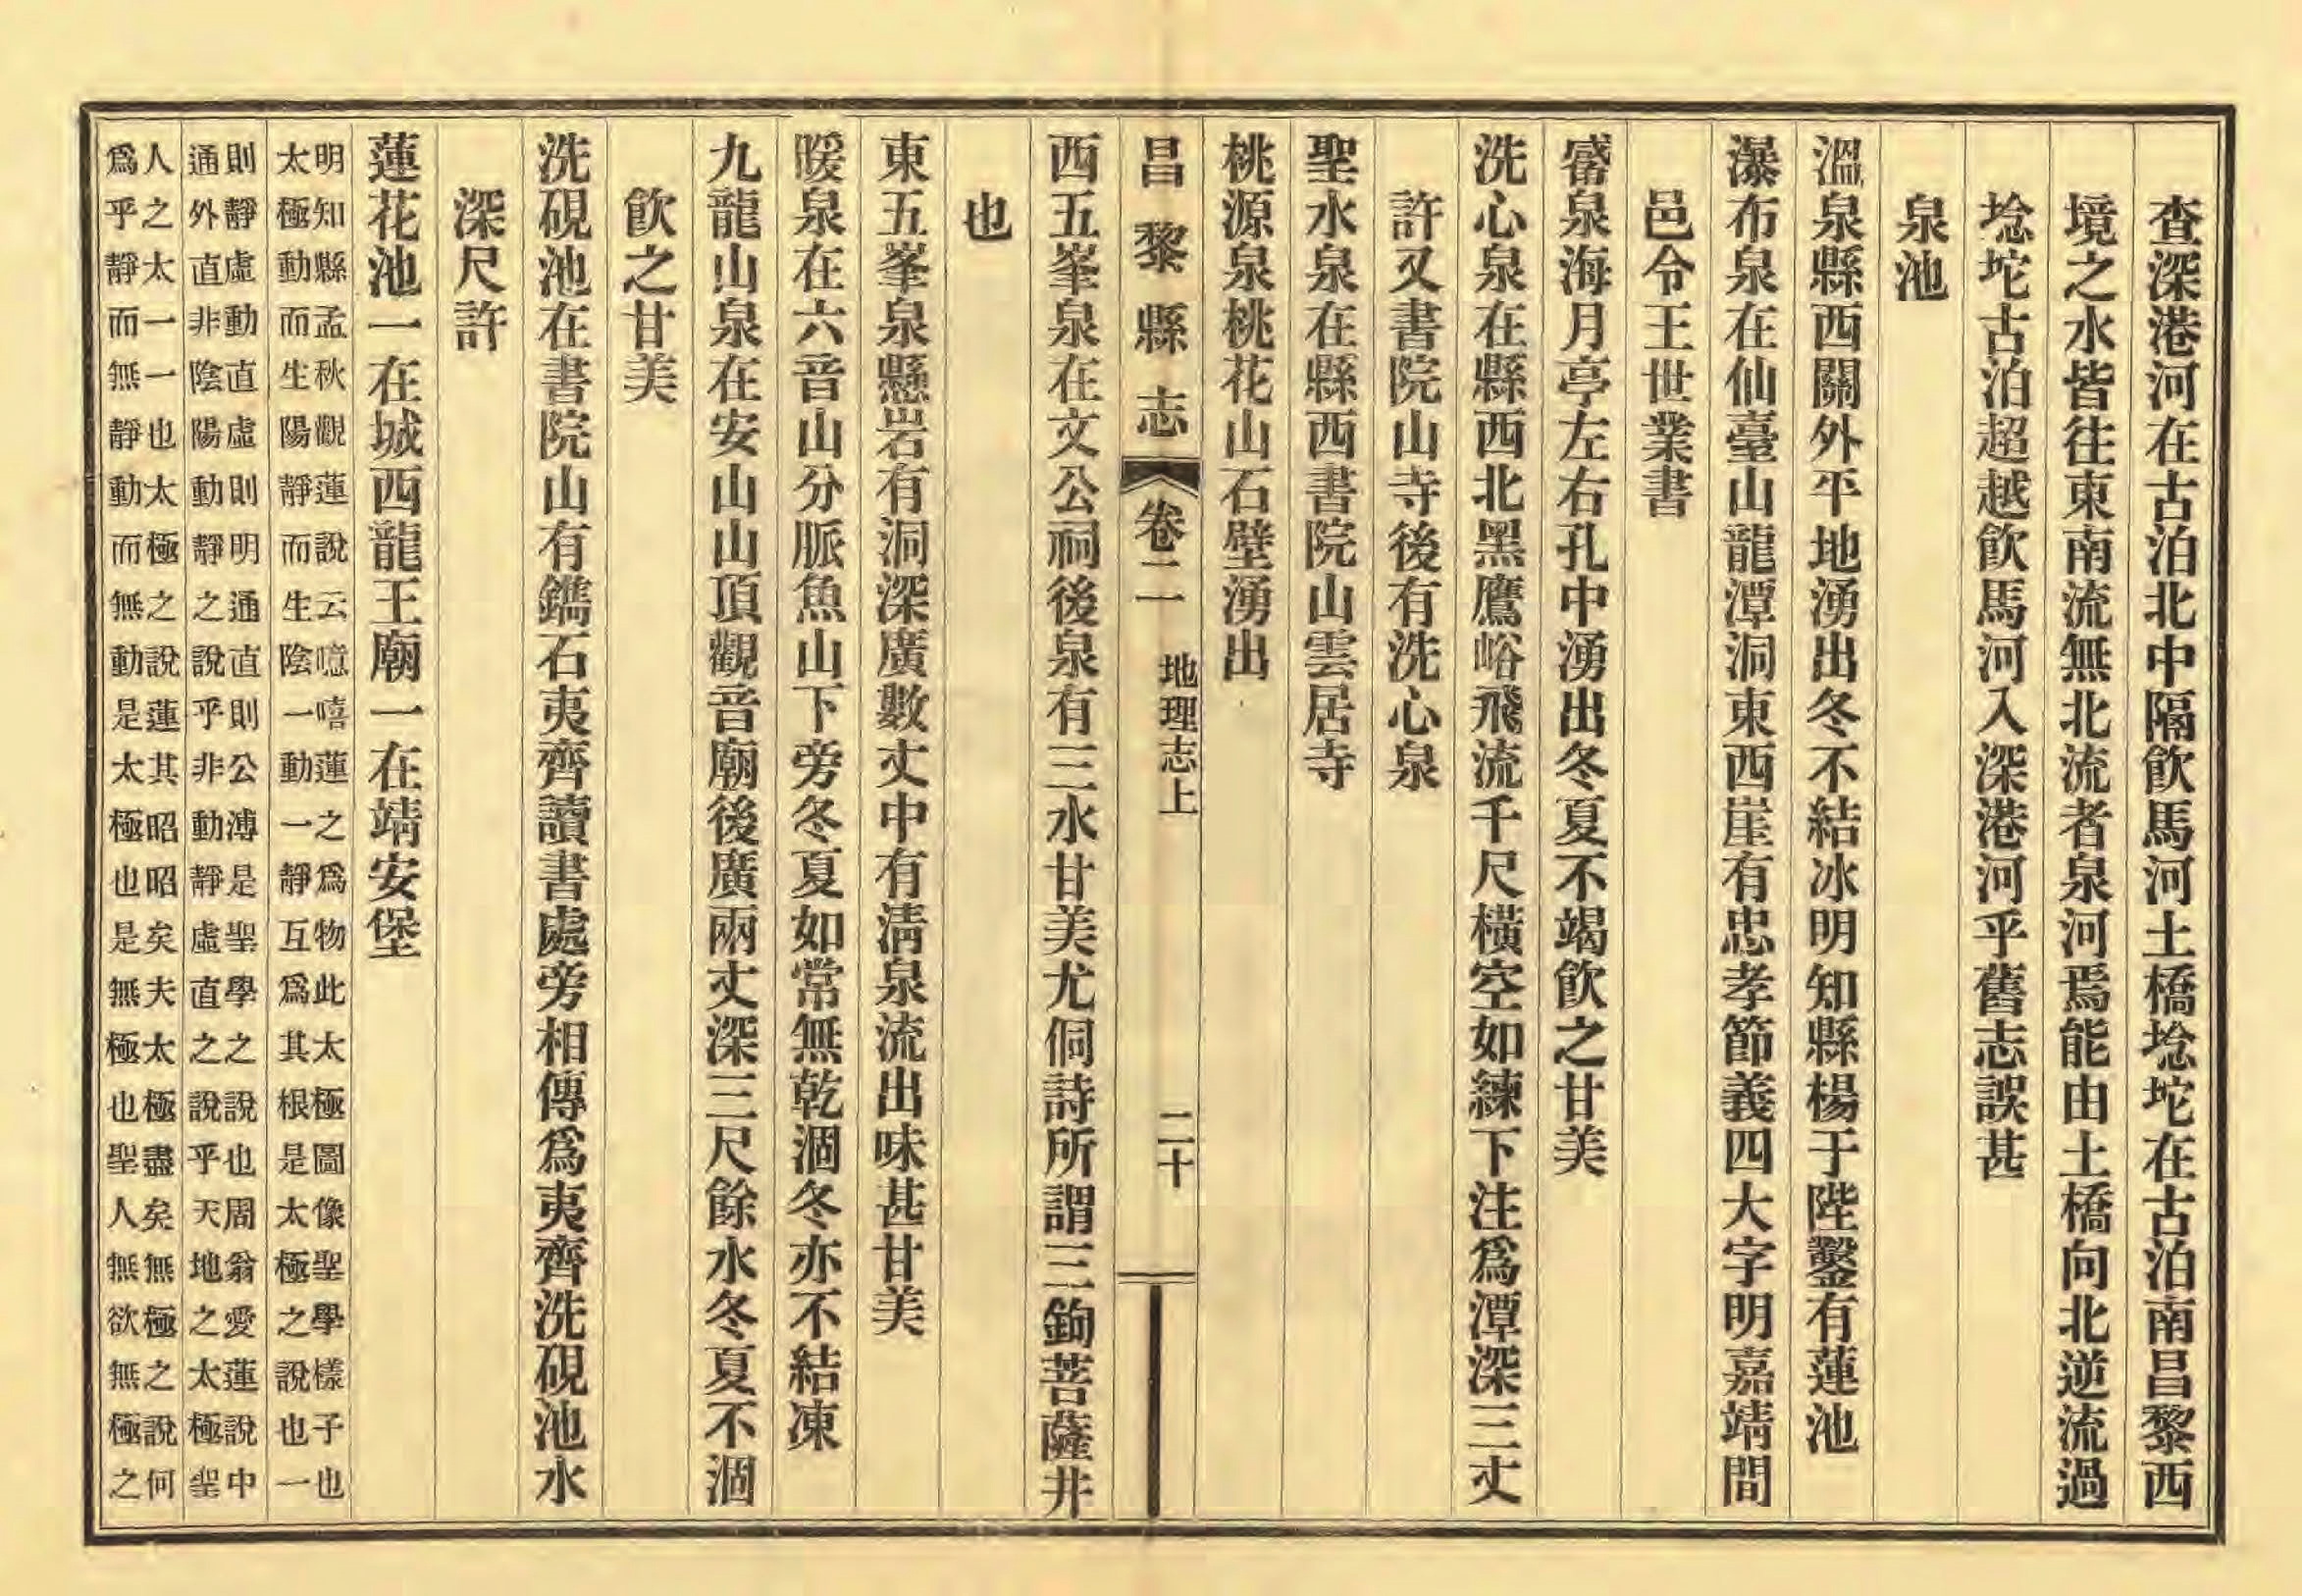 查深港河在古泊北中隔飲馬河土橋埝坨在古泊南昌黎西
境之水皆往東南流無北流者泉河焉能由土橋向北逆流過
埝坨古泊超越飲馬河入深港河乎舊志誤甚
泉池
溫泉縣西關外平地湧出冬不結冰明知縣楊于陛鑿有蓮池
瀑布泉在仙臺山龍潭洞東西崖有忠孝節義四大字明嘉靖間
邑令王世業書
泉海月亭左右孔中湧出冬夏不竭飲之甘美
洗心泉在縣西北黑鷹峪飛流千尺橫空如練下注爲潭深三丈
許又書院山寺後有洗心泉
聖水泉在縣西書院山雲居寺
桃源泉桃花山石壁湧出
昌黎縣志 卷二 地理志上 二十
西五峯泉在文公祠後泉有三水甘美尤侗詩所謂三鉤菩薩井
也
東五峯泉懸岩有洞深廣數丈中有淸泉流出味甚甘美
暖泉在六音山分脈魚山下旁冬夏如常無乾涸冬亦不結凍
九龍山泉在安山山頂觀音廟後廣兩丈深三尺餘水冬夏不涸
飲之甘美
洗硯池在書院山有鐫石夷齊讀書處旁相傳爲夷齊洗硯池水
深尺許
蓮花池一在城西龍王廟一在靖安堡
明知縣孟秋觀蓮說云噫嘻蓮之爲物此太極圖像聖學樣子也
太極動而生陽靜而生陰一動一靜互爲其根是太極之說也一
則靜虛動直虛則明通直則公溥是聖學之說也周翁愛蓮說中
通外直非陰陽動靜之說乎非動靜虛直之說乎天地之太極聖
人之太一一也太極之說蓮其昭昭矣夫太極盡矣無極之說何
爲乎靜而無靜動而無動是太極也是無極也聖人無欲無極之